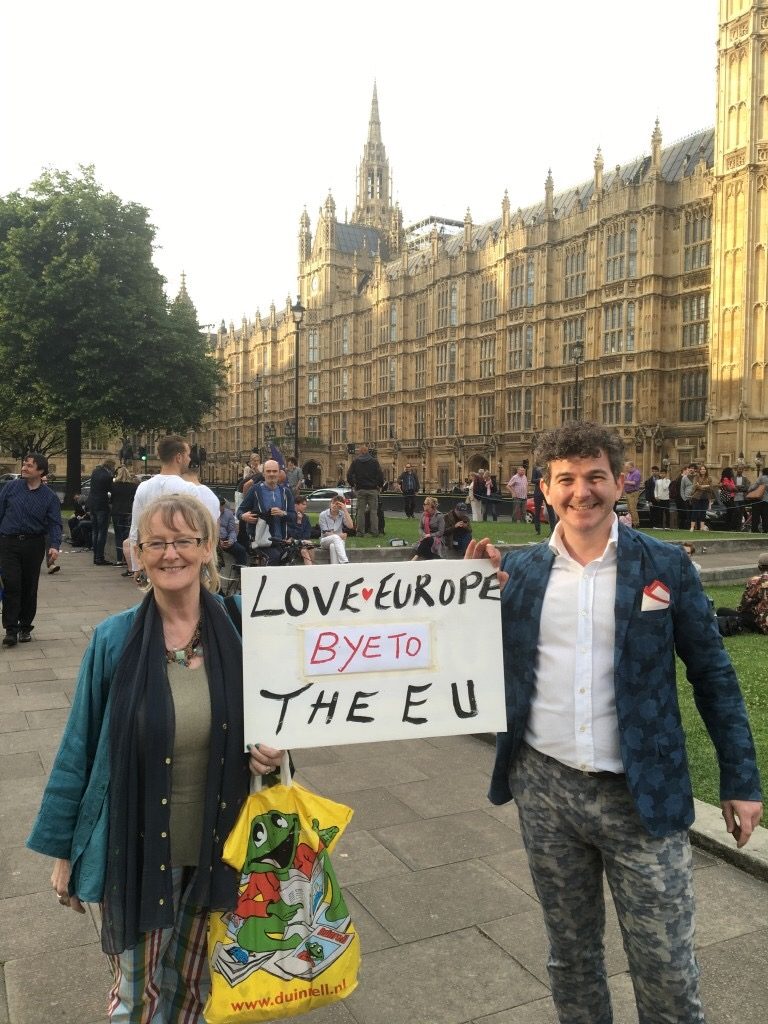 LOVE♥EUROPE
BYE TO
THE EU
www.duinrell.nl